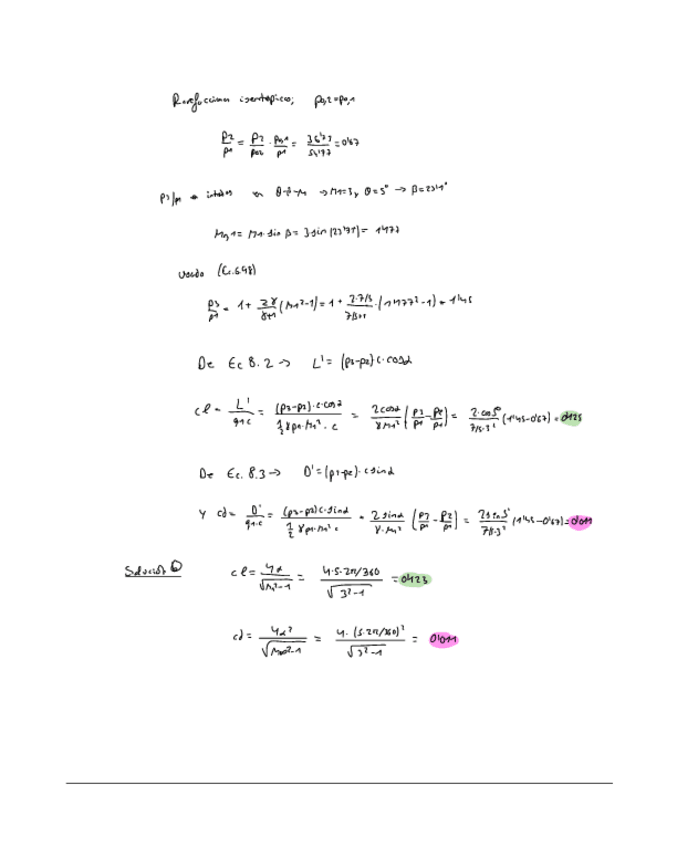 isentrópicas; p0,2=p0,1
p2/p1 = p2/p02 · p0,1/p1 = 36'73/54'97 = 0'67
p3/p1 θ-β-M → M1=3 y θ=5° → β=23'1°
Mn1= M1·sin β = 3 sin (23'1) = 1'177
Usando (Ec.6.48)
p3/p1 = 1+ 2γ/γ+1 (Mn1²-1) = 1 + 2·7/5/7/5+1 · (1'177²-1) = 1'45
De Ec 8.2 → L' = (p3-p2)c·cosα
cl = L'/q1·c = (p3-p2)·c·cosα / ½γp1·M1²·c = 2cosα/γM1² (p3/p1 - p2/p1) = 2·cos5°/7/5·3² (1'45-0'67) = 0'123
De Ec. 8.3 → D'=(p3-p2)·c sinα
y cd = D'/q1·c = (p3-p2)c·sinα / ½γp1·M1²·c = 2 sinα/γ·M1² (p3/p1 - p2/p1) = 2 sin5°/7/5·3² (1'45-0'67) = 0'011
Solución cl = 4α/√M1²-1 = 4·5·2π/360 / √3²-1 = 0'123
cd = 4α²/√M∞²-1 = 4·(5·2π/360)² / √3²-1 = 0'011